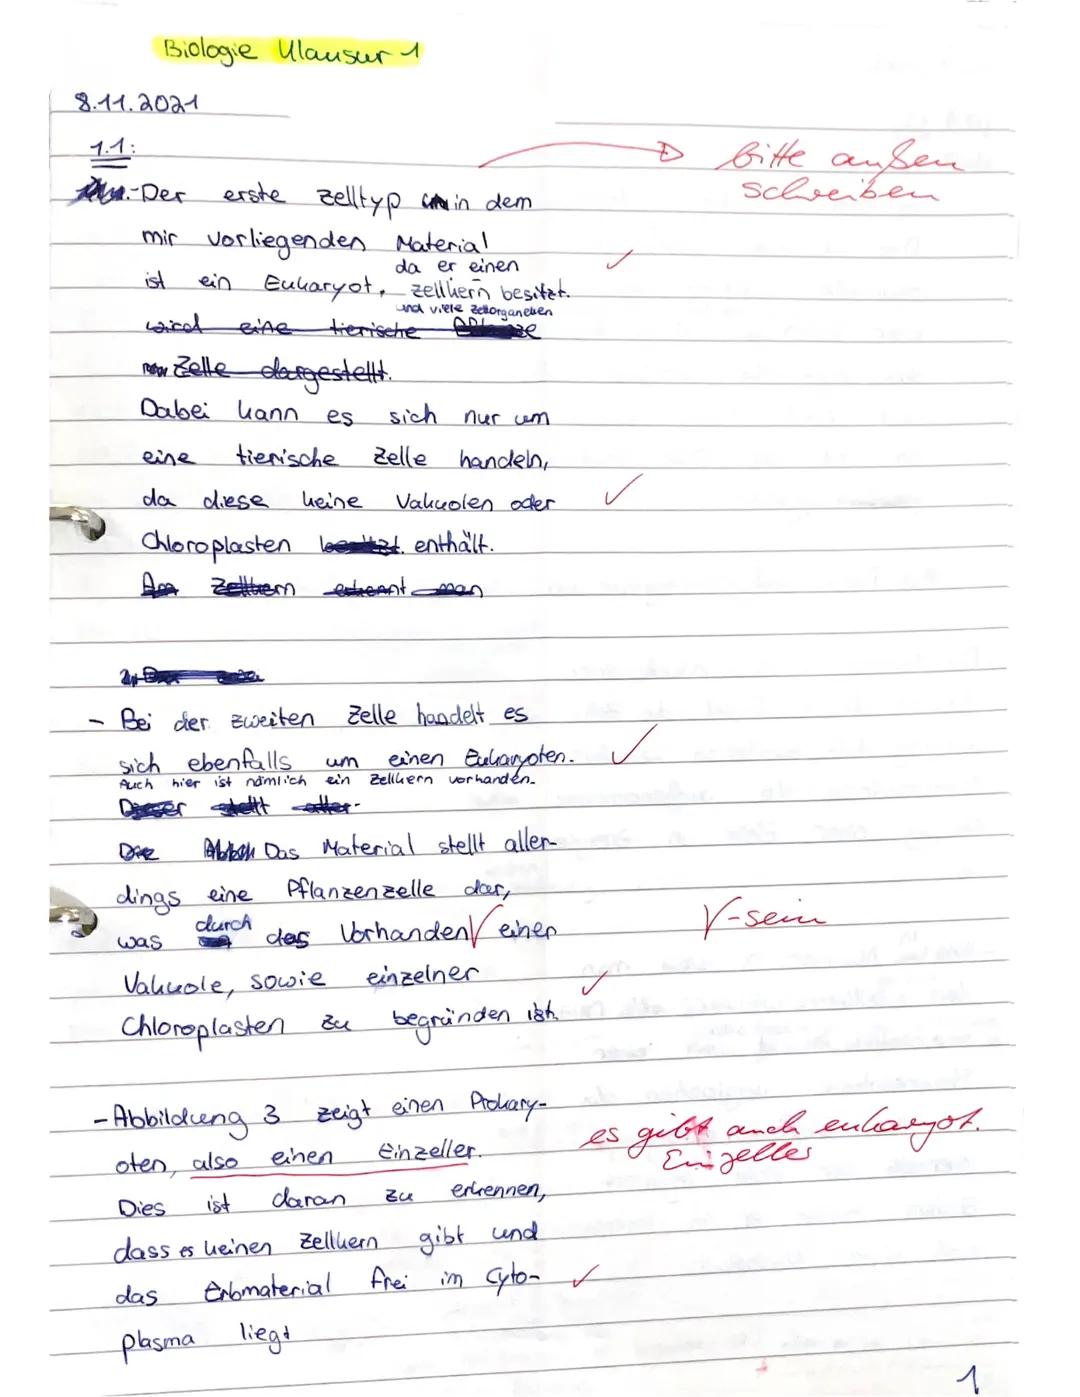 Biologie Klausur 1
8.11.2021
1.1:
bitte außen
schreiben
-Der erste Zelltyp in dem
mir vorliegenden Material
da er einen
ist ein Eukaryot, Zellkern besitzt.
und viele Zellorganellen
wird eine tierische
Zelle dargestellt.
Dabei kann es sich nur um
eine tierische Zelle handeln,
da diese keine Vakuolen oder
Chloroplasten besitzt. enthält.
Am Zellkern erkennt man
- Bei der zweiten Zelle handelt es
sich ebenfalls um einen Eukaryoten.
Auch hier ist nämlich ein Zellkern vorhanden.
Dieser stellt aller-
Die Das Material stellt aller-
dings eine Pflanzenzelle dar,
was durch des Vorhanden√ einer
√-sein
Vakuole, sowie einzelner
Chloroplasten zu begründen ist.
-Abbildung 3 zeigt einen Prokary-
oten, also einen Einzeller.
es gibt auch eukaryot.
Einzeller
Dies ist daran zu erkennen,
dass es keinen Zellkern gibt und
das Erbmaterial frei im Cyto-
plasma liegt
1